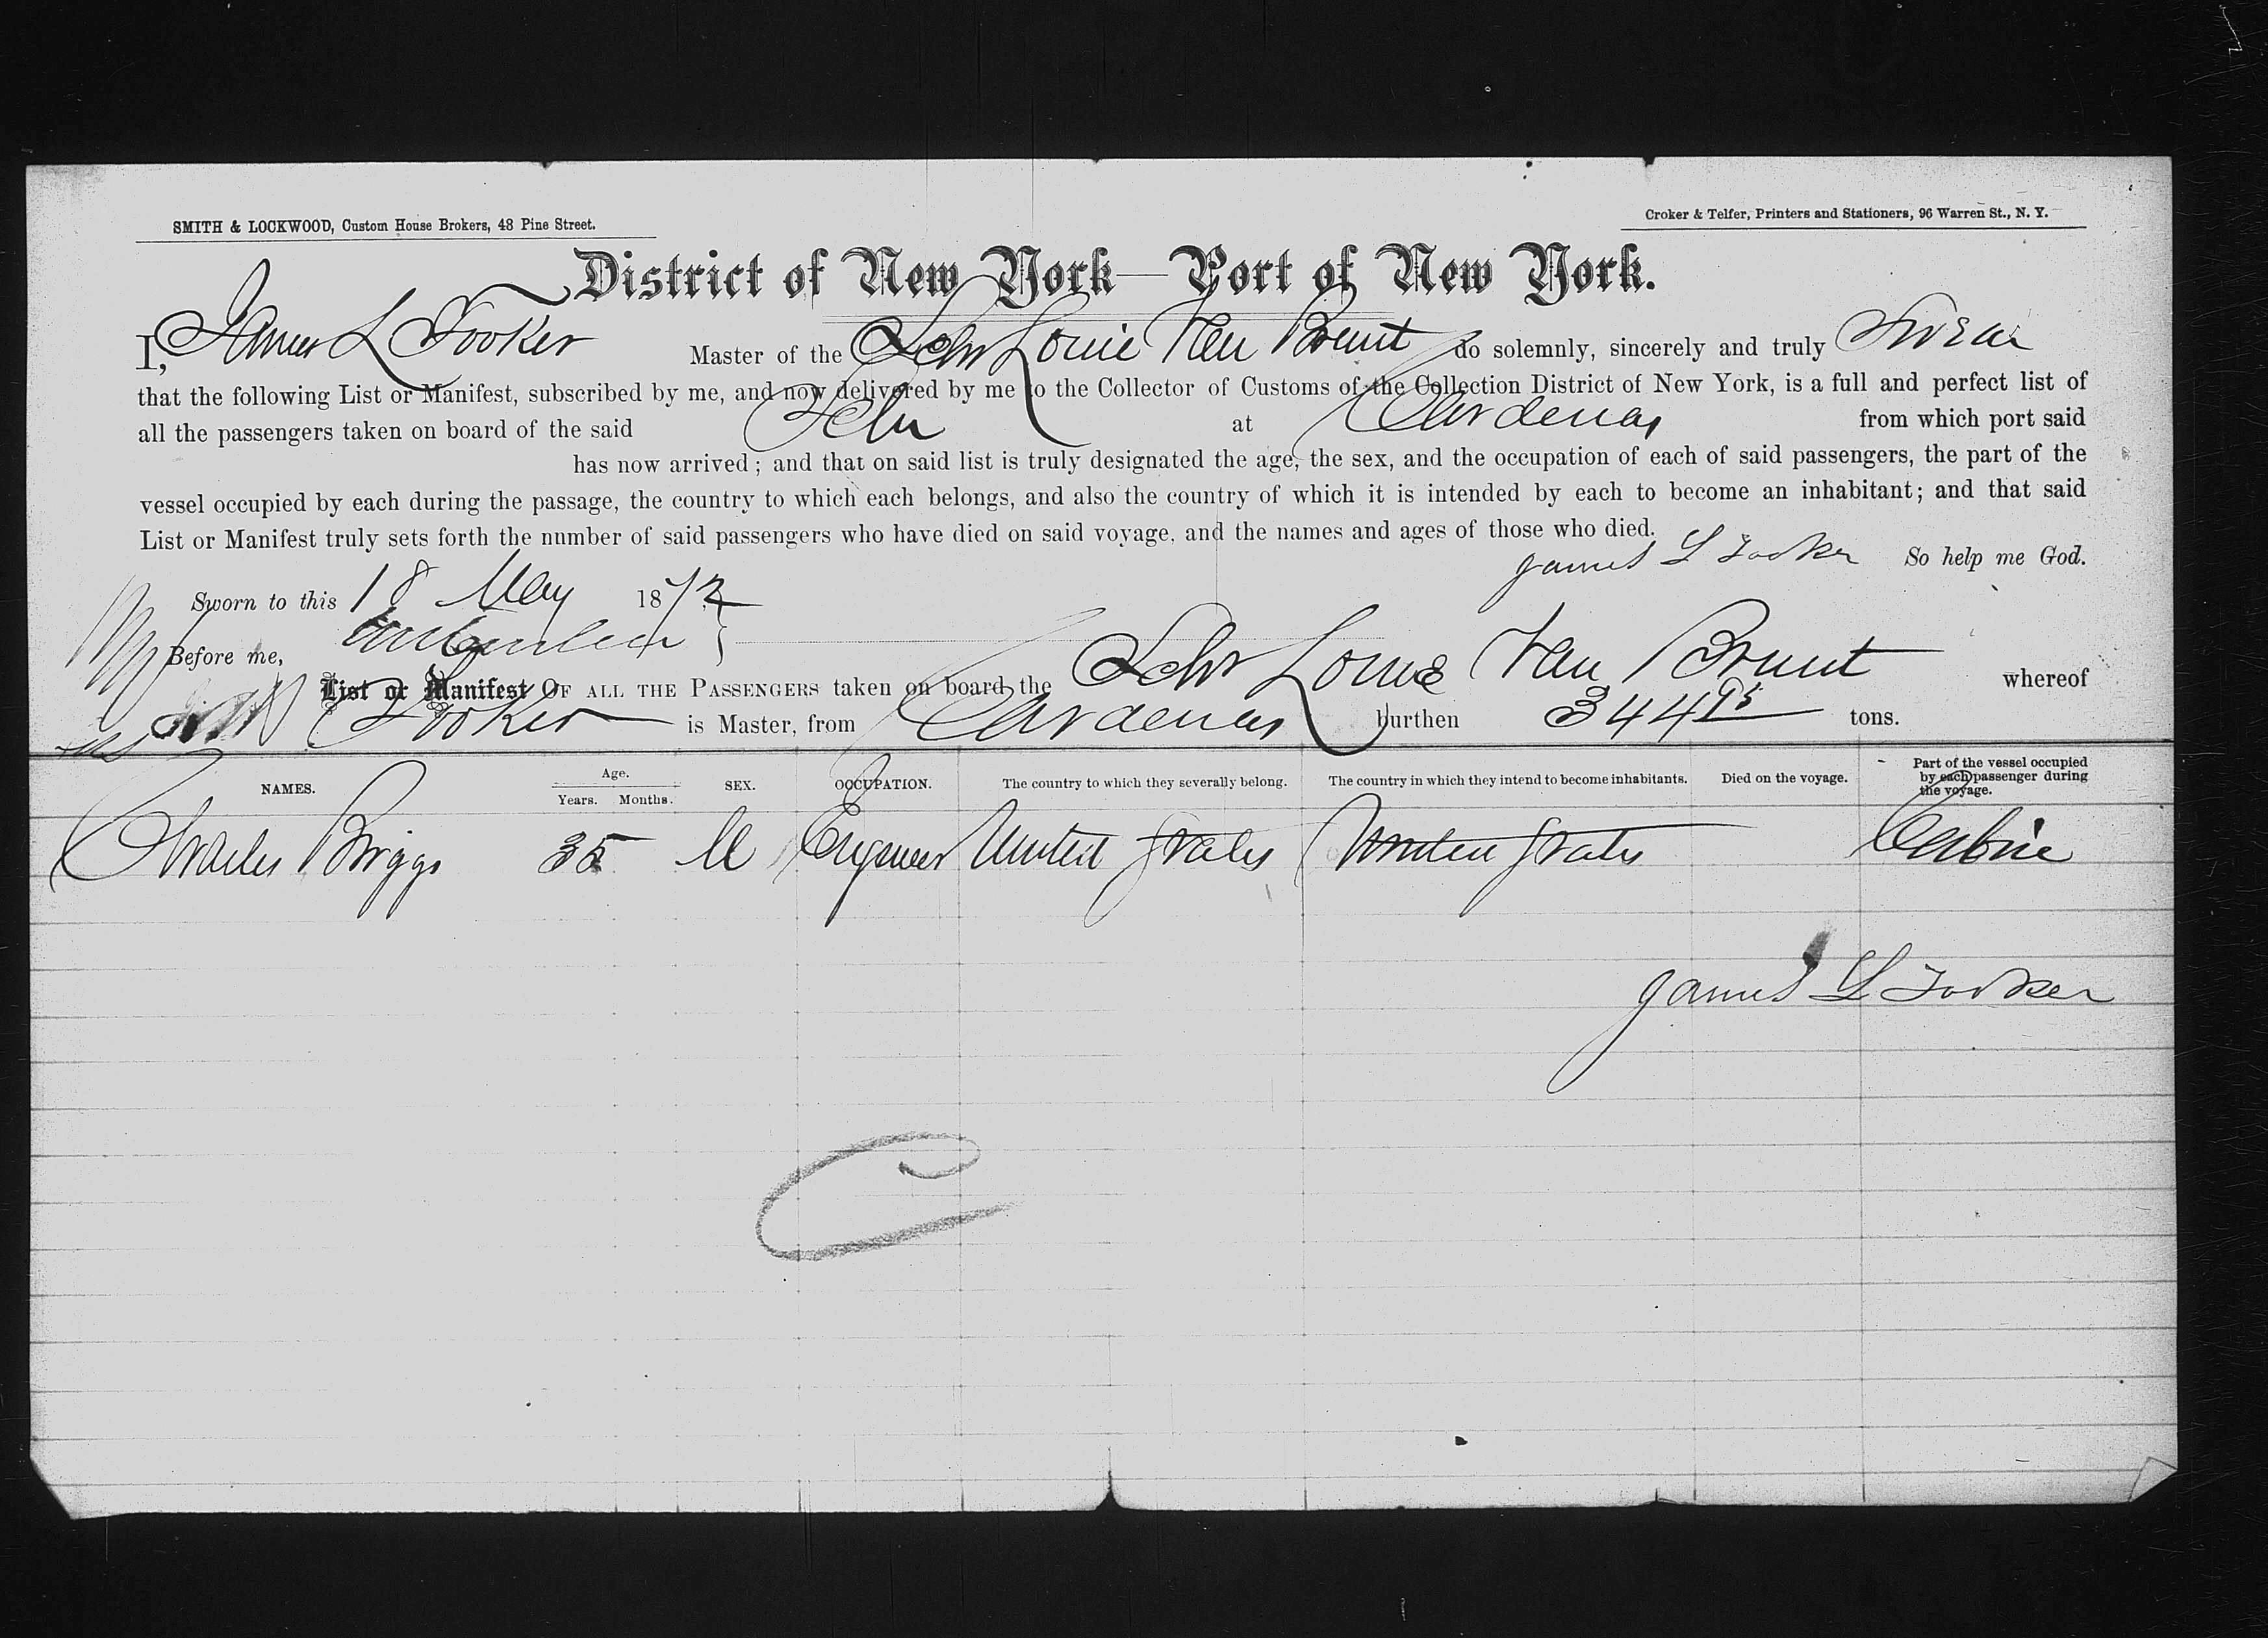 SMITH & LOCKWOOD, Custom House Brokers, 48 Pine Street.
Croker & Telfer, Printers and Stationers, 96 Warren St., N. Y.
District of New York—Port of New York.
I, James L Tooker Master of the Schr Louie Van Brunt do solemnly, sincerely and truly Swear
that the following List or Manifest, subscribed by me, and now delivered by me to the Collector of Customs of the Collection District of New York, is a full and perfect list of
all the passengers taken on board of the said Schr at Cardenas from which port said
has now arrived; and that on said list is truly designated the age, the sex, and the occupation of each of said passengers, the part of the
vessel occupied by each during the passage, the country to which each belongs, and also the country of which it is intended by each to become an inhabitant; and that said
List or Manifest truly sets forth the number of said passengers who have died on said voyage, and the names and ages of those who died.
James L Tooker So help me God.
Sworn to this 18 May 1872
Before me,
List or Manifest OF ALL THE PASSENGERS taken on board the Schr Louie Van Brunt whereof
Tooker is Master, from Cardenas burthen 344 95 tons.
NAMES. Age. Years. Months. SEX. OCCUPATION. The country to which they severally belong. The country in which they intend to become inhabitants. Died on the voyage. Part of the vessel occupied by each passenger during the voyage.
Charles Briggs 35 M Engineer United States United States Cabin
James L Tooker